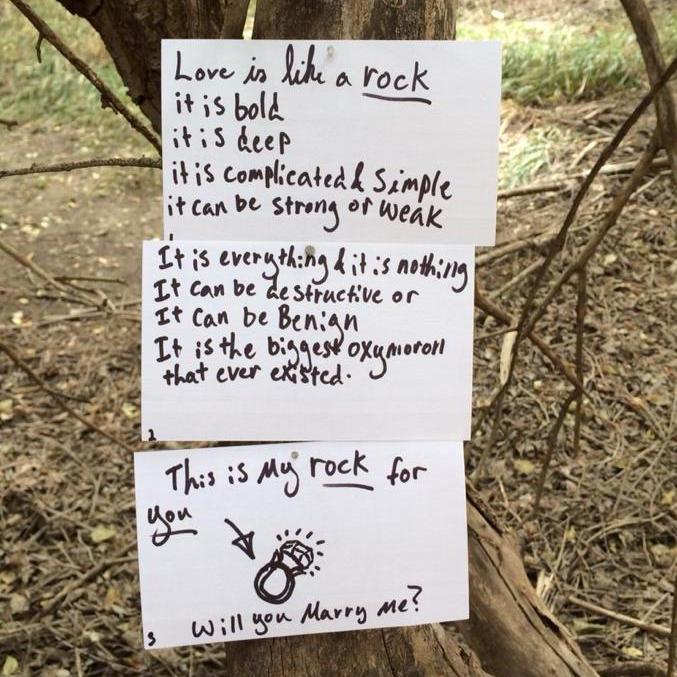 Love is like a rock
it is bold
it is deep
it is complicated & simple
it can be strong or weak
It is everything & it is nothing
It can be destructive or
It can be Benign
It is the biggest oxymoron
that ever existed.
2
This is My rock for
you
3 Will you Marry Me?